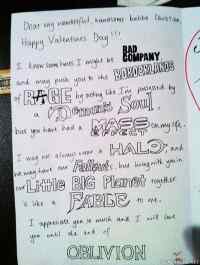 Dear my wonderful, handsome hubba Christian,
Happy Valentines Day!!!
I know sometimes I might be BAD COMPANY
and may push you to the BORDERLANDS
of RAGE by acting like I'm possessed by
a Demon's Soul,
but you have had a MASS EFFECT on my life.
I may not always wear a HALO, and
we may have our Fallouts, but living with you in
our Little BIG Planet together
is like a FABLE to me.
I appreciate you so much and I will love
you until the end of
OBLIVION